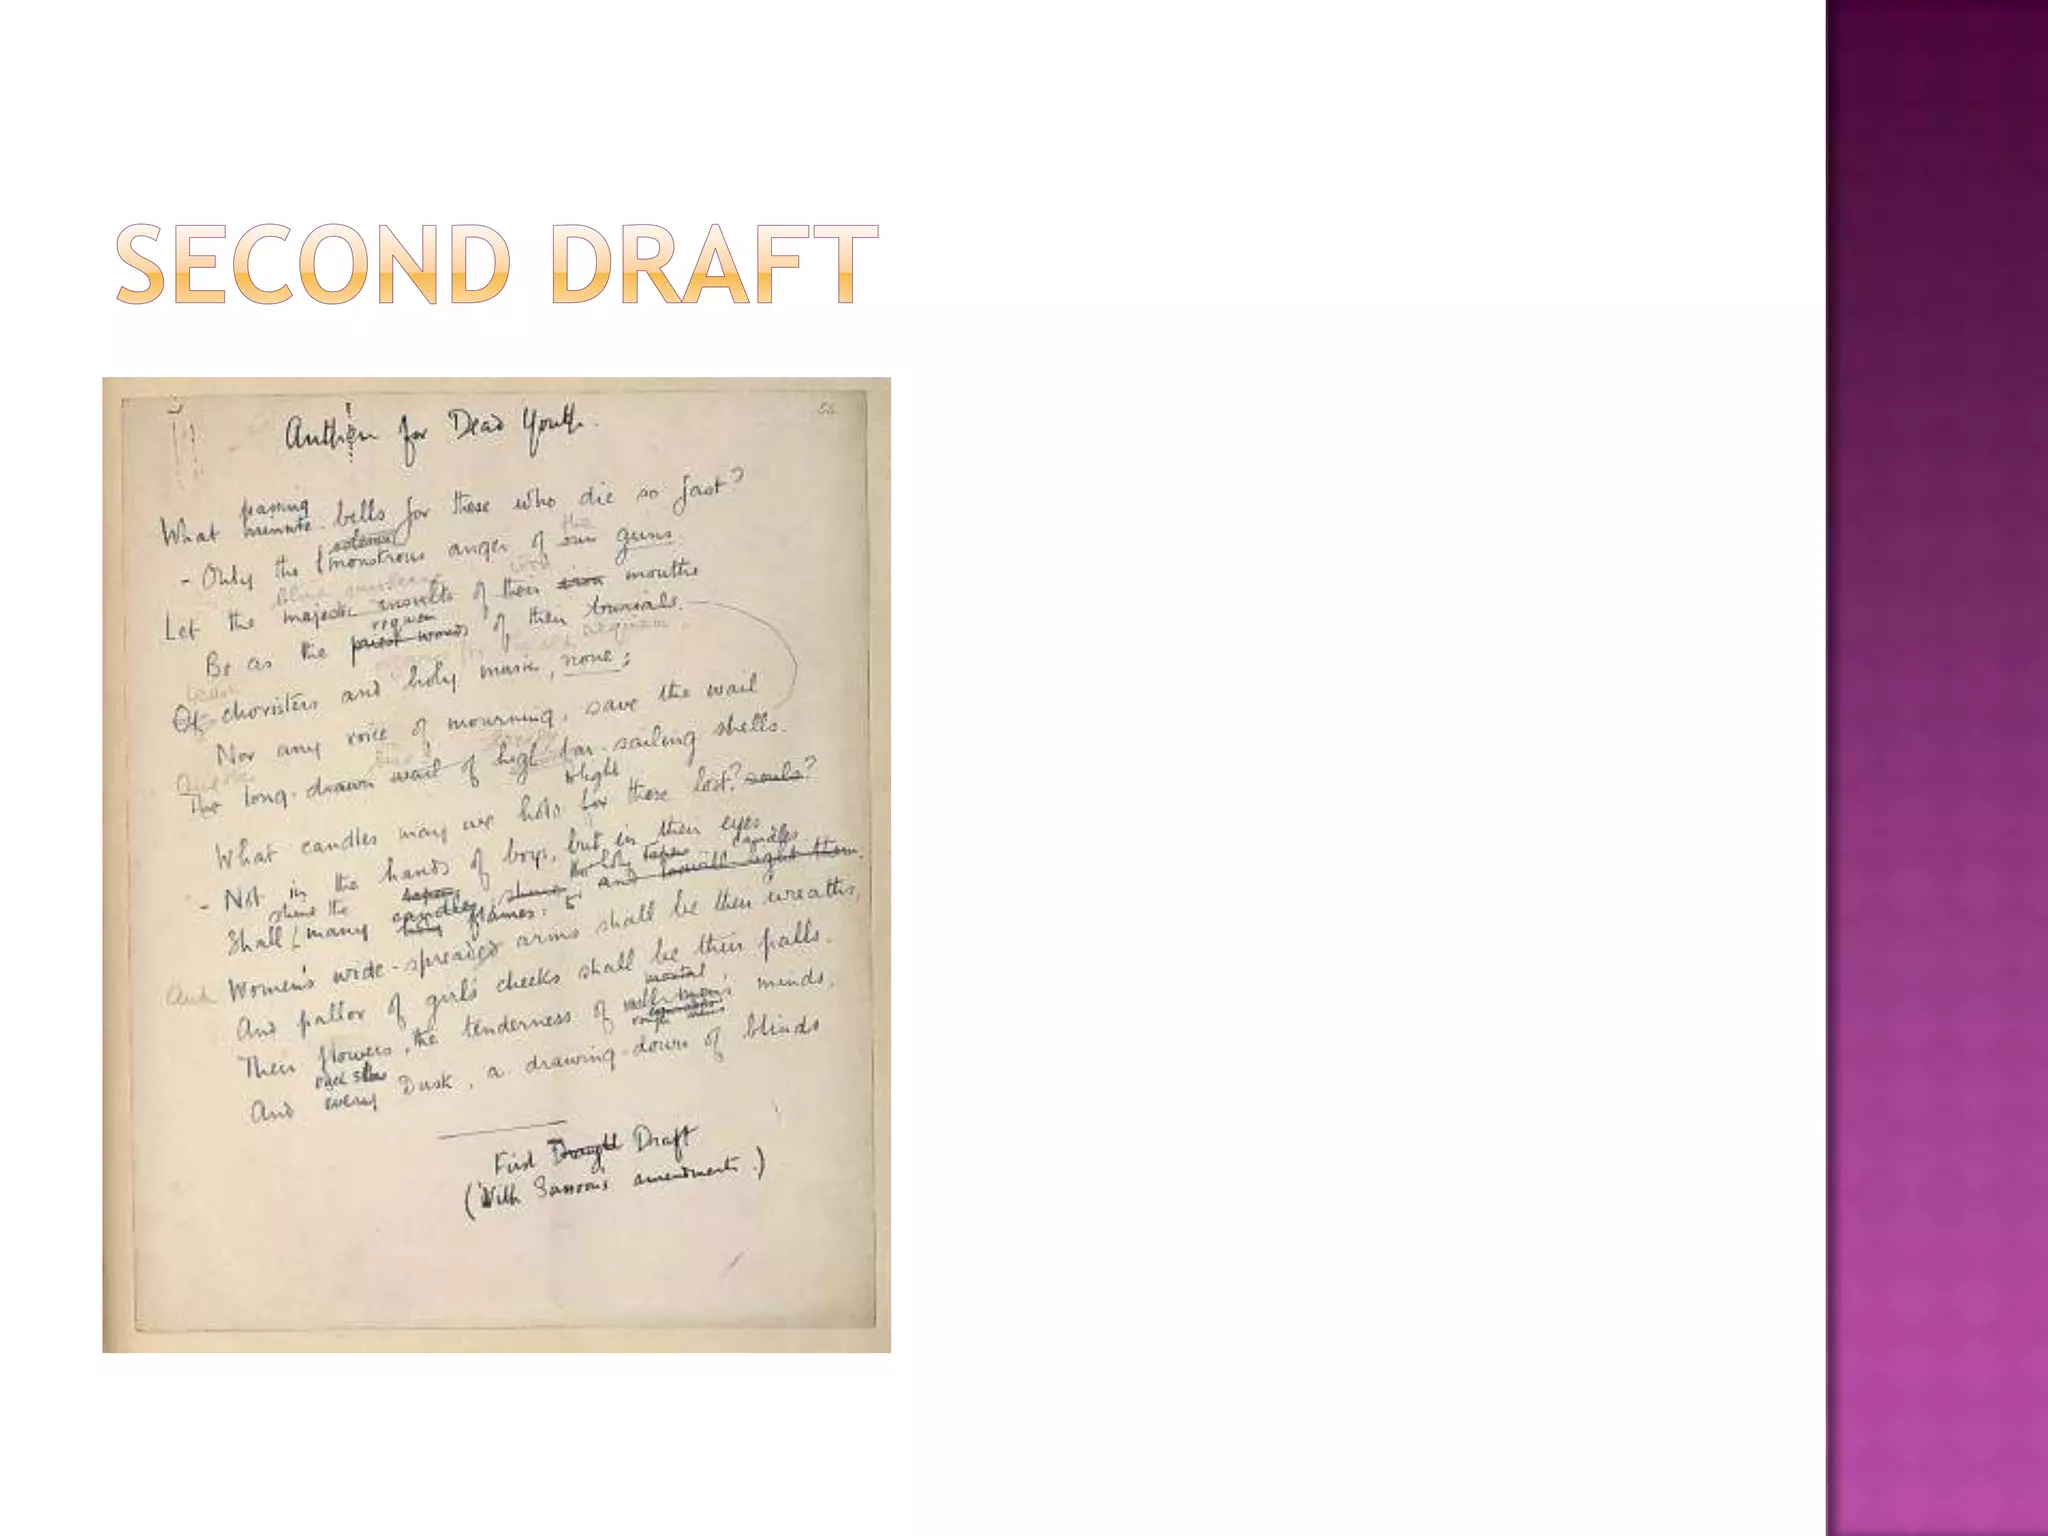 SECOND DRAFT
Anthem for Dead Youth.
passing
What minute bells for these who die so fast?
solemn the
- Only the monstrous anger of our guns.
Let the majestic insults of their iron mouths
requiem
Be as the priest words of their burials.
requiem
Of choristers and holy music, none;
Nor any voice of mourning, save the wail
The long-drawn wail of high far-sailing shells.
light
What candles may we hold for these lost? souls?
- Not in the hands of boys, but in their eyes
shine the tapers candles
Shall many candles shine and light them.
holy flames.
And Women's wide-spreaded arms shall be their wreaths,
And pallor of girls cheeks shall be their palls.
mortal
Their flowers, the tenderness of all men's minds,
rough
each slow
And every Dusk, a drawing-down of blinds
First Draft
(With Sassoon's amendments.)